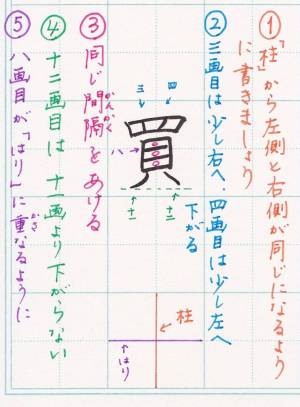 ①「柱」から左側と右側が同じになるよう
に書きましょう
②三画目は少し右へ、四画目は少し左へ
下がる
四
三
買
八
十一
十二
③同じ間隔をあける
かんかく
④十二画目は十一画より下がらない
⑤八画目が「はり」に重なるように
かさ
柱
はり